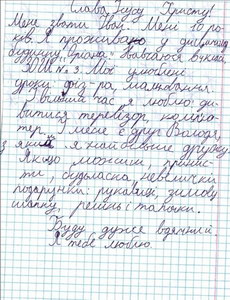 Слава Ісусу Христу!
Мене звати Іван. Мені 10 ро-
ків. Я проживаю у дитячому
будинку "Оріана". Навчаюся в укліп.
ЗШ №3. Мої улюблені
уроки фіз-ра, малювання.
Вільний час я люблю ди-
витися телевізор, комп'ю-
тер. У мене є друг Володя,
з яким я найбільше дружу.
Якщо можиш, принес-
ти, будьласка, невелички
подарунки: рукавиці, зимову
шапку, ремінь і тапочки.
Буду дуже вдячний.
Я тебе люблю.